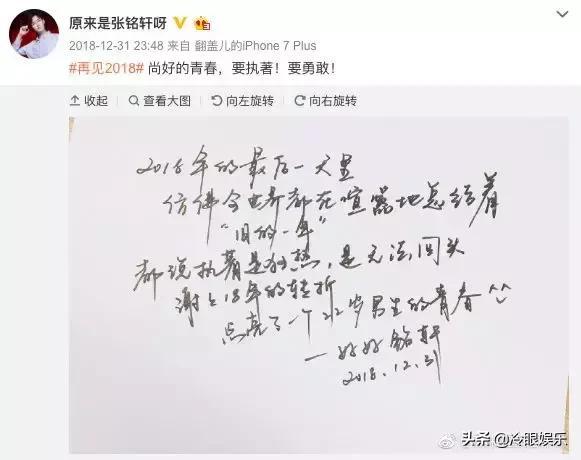 原来是张铭轩呀
2018-12-31 23:48 来自 翻盖儿的iPhone 7 Plus
#再见2018# 尚好的青春，要执著！要勇敢！
收起 查看大图 向左旋转 向右旋转
2018年的最后一天里
仿佛全世界都在喧嚣地总结着
“旧的一年”
都说执著是狂热，是无法回头
谢谢18年的转折
点亮了一个22岁男生的青春^^
—好好铭轩
2018.12.31
头条 @冷眼娱乐